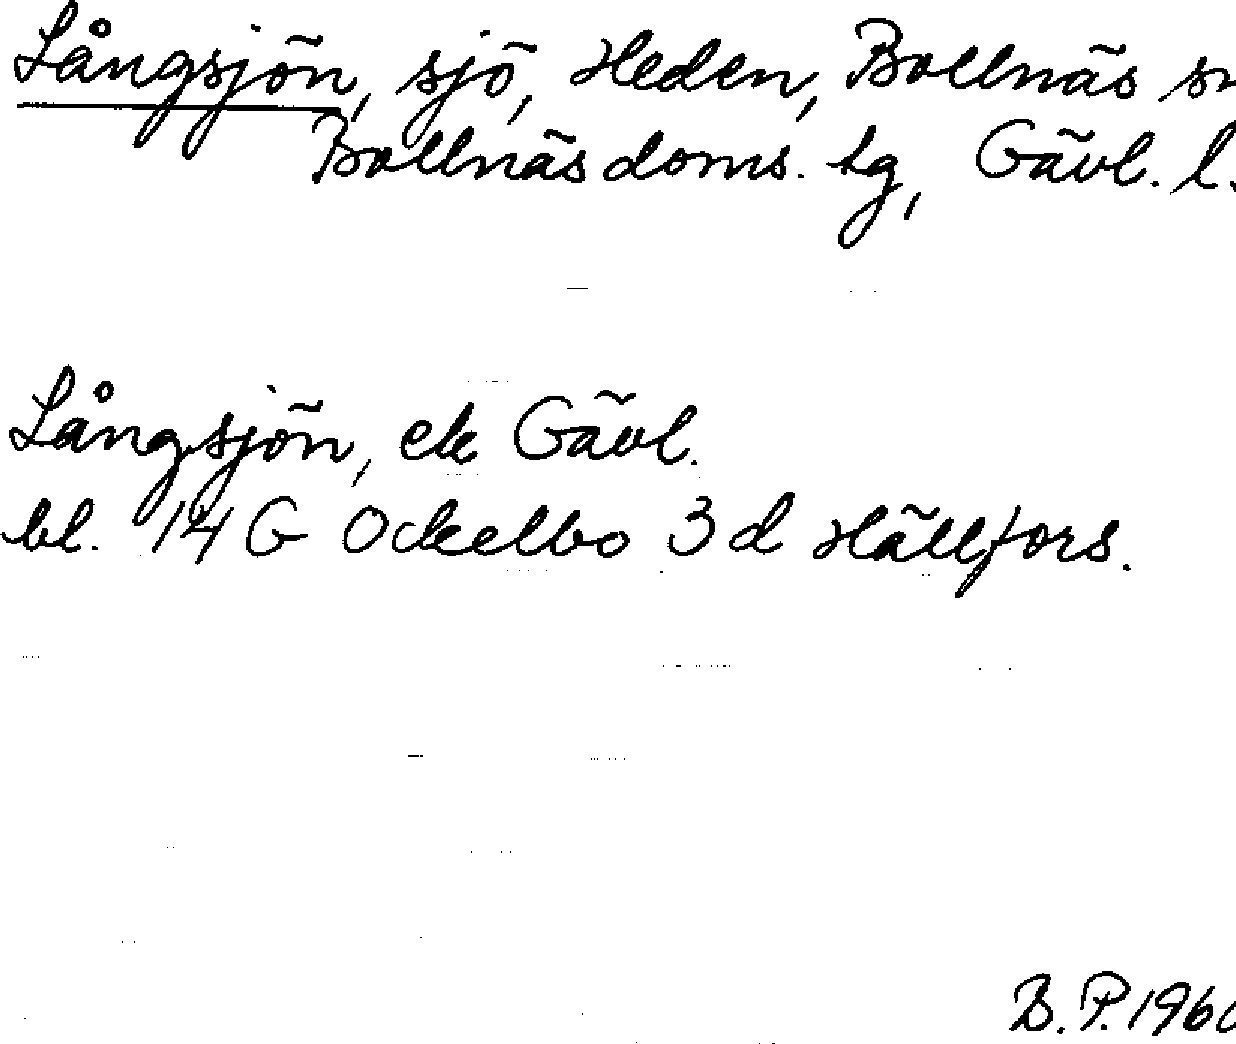 Långsjön, sjö, Heden, Bollnäs sn
Bollnäs doms. tg, Gävl. l.
Långsjön, ek Gävl.
bl. 14 G Ockelbo 3 d Hällfors.
B. P. 1960